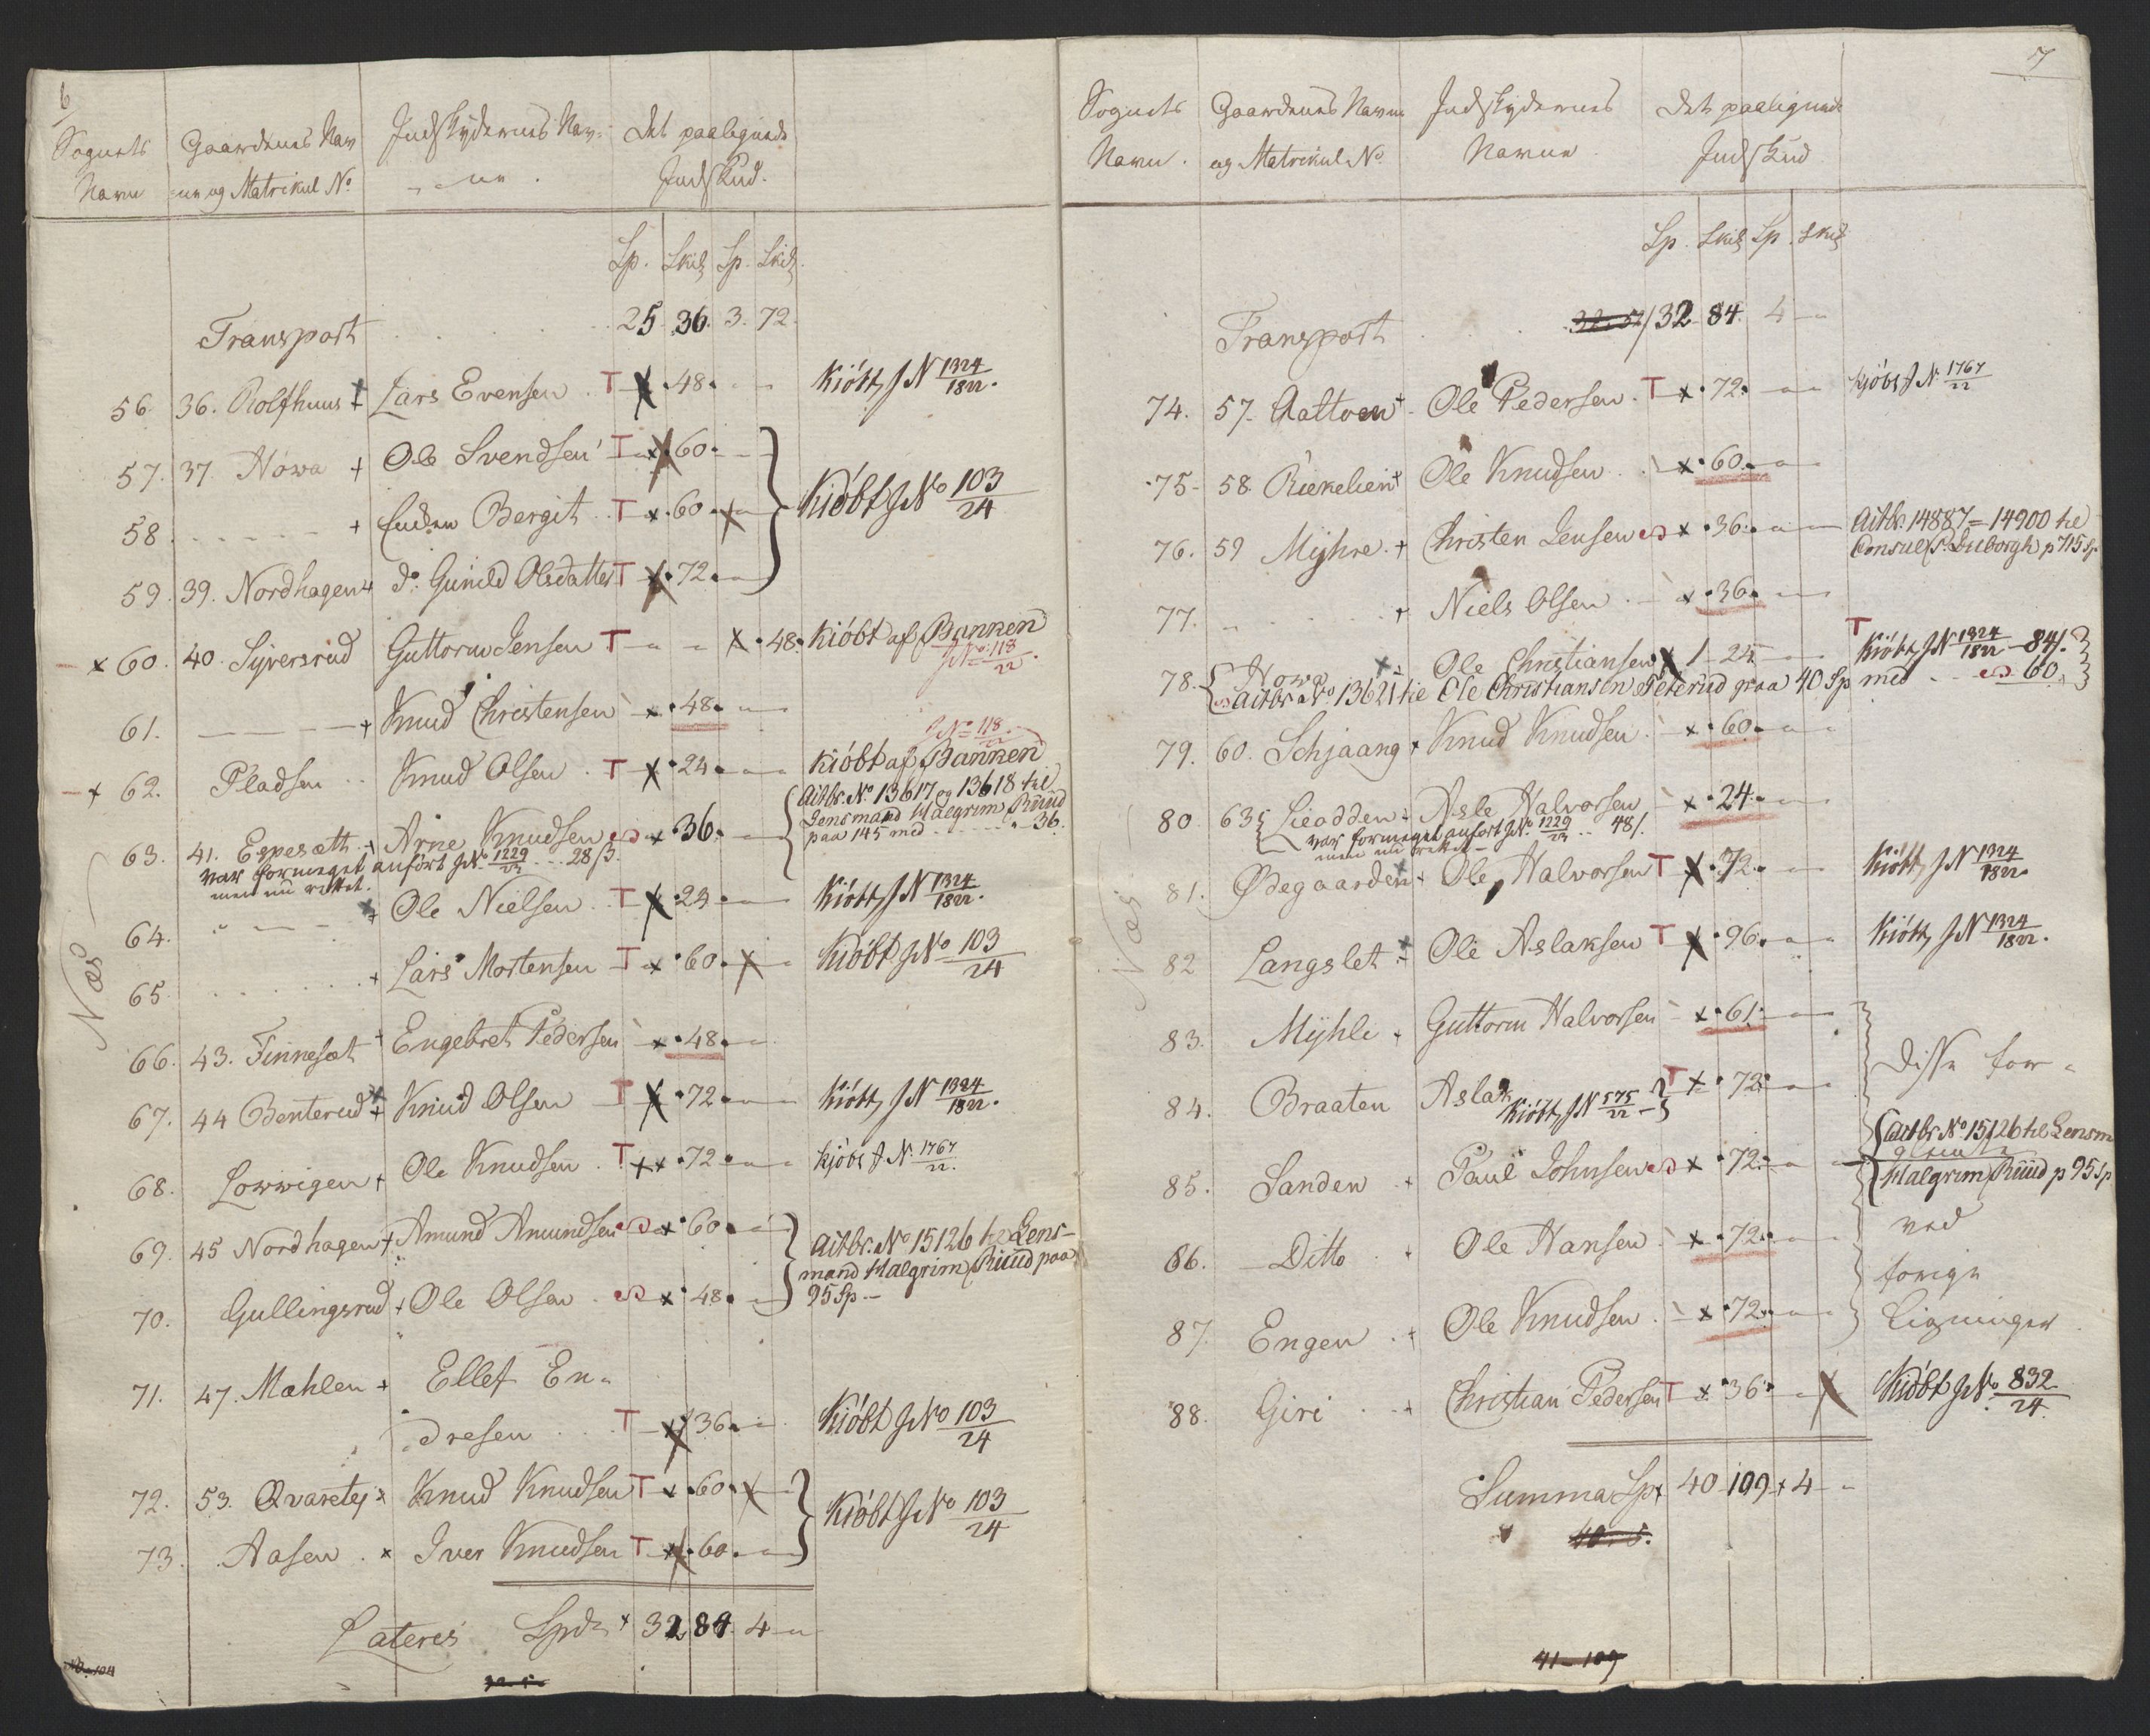 6
Sognets Gaardenes Nav Indskydernes Nav- det paalignede
Navn -ne og Matrikul No -ne. Indskud.
Sp. Skil Sp. Skil.
Transport 25 36. 3. 72.
56. 36. Rolfhuus + Lars Evensen T x .48. Kiöbt, J N 1324/1822.
57. 37. Nowa + Ole Svendsen T x 60.
58. + Enken Bergit T x .60. x Kiöbt J No 103/24
59. 39. Nordhagen + do: Gunild Olsdatter T x .72.
x 60. 40. Syversrud Guttorm Jensen T x .48. Kiöbt af Banken
J No: 118/22.
61. + Knud Christensen x .48.
J No 118/22
x 62. Pladsen Knud Olsen T x .24. Kiöbt af Banken
Actbr. No 13617 og 13618 til
63. 41. Espesæth + Arne Knudsen x .36. Lensmand Halgrim Ruud
paa 145 med 36.
var formeget anfört J No 1229/23 28 ß.
men nu rettet.
64. + Ole Nielsen T x .24. Kiöbt, J N 1324/1822.
65. + Lars Mortensen T x .60. x Kiöbt J No 103/24
Næs
66. 43. Finnesæt + Engebret Pedersen x .48.
67. 44 Benterud + Knud Olsen T x .72. Kiöbt, J N 1324/1822.
68. Lowwigen + Ole Knudsen T x x .72. kjöbt J N. 1767/22.
69. 45 Nordhagen + Amund Amundsen x .60. Actbr. No 15126 til Lens-
mand Halgrim Ruud paa
70. Gullingsrud + Ole Olsen x .48. 95 Sp.-
71. 47. Mæhlen + Ellef En-
dresen T x 36. Kiöbt J No 103/24
72. 53. Qvaretej x Knud Knudsen T x .60. x
Kiöbt J No 103/24
73. Aasen x Iver Knudsen T x .60.
Lateres Spdr x 32 84. 4
7
Sognets Gaardenes Navne Indskydernes det paalignede
Navn. og Matrikul No. Navne. Indskud
Sp. Skil Sp. Skil
Transport 32 84. 4
74. 57. Aattoen + Ole Pedersen T x .72. kjöbt J N. 1767/22
75. 58. Riekelien + Ole Knudsen x .60.
76. 59 Myhre + Christen Jensen x .36. Actbr. 14887 = 14900 til
Consul P. Duborgh p 715 Sp.
77. + Niels Olsen x .36.
T
78. Nowa + Ole Christiansen x 1 24 Kiöbt, J N 1324/1822 84 ß.
Actbr No. 13621 til Ole Christiansen Teterud paa 40 Sp med 60.
79. 60. Schjaang + Knud Knudsen x .60.
80. 63 Lieodden + Asle Halvorsen x .24.
var formeget anfört J No. 1229/23 48 ß.
men nu rettet
81. Ödegaarden + Ole Halvorsen T x .72. Kiöbt, J N 1324/1822.
Næs
82 Langslet + Ole Aslaksen T x .96. Kiöbt, J N 1324/1822.
83. Myhli + Guttorm Halvorsen x .61.
Disse for-
84. Braaten Aslak T x .72.
Kiöbt, J N 575/22
Actbr No 15126 til Lensm
85. Sanden + Paul Johnsen x .72.
Halgrim Ruud p 95 Sp
ved
86. Ditto + Ole Hansen x .72.
forige
87. Engen + Ole Knudsen x .72. Ligninger
88. Giri + Christian Pedersen T x .36. x Kiöbt J No. 832/24
Summa Sp x 40 109 + 4
41-109